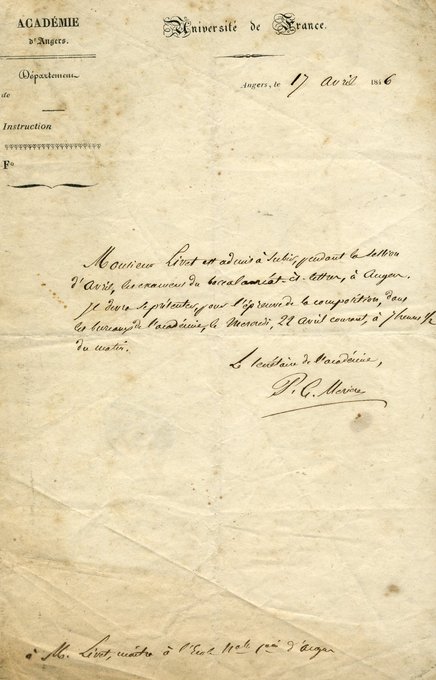 ACADÉMIE
d'Angers.
Département
de
Instruction
F°
Université de France.
Angers, le 17 avril 1846
Monsieur Livet est admis à subir, pendant la session
d'Avril, les examens du baccalauréat-ès-lettres, à Angers.
Il devra se présenter, pour l'épreuve de la composition, dans
les bureaux de l'académie, le Mercredi, 22 Avril courant, à 7 heures 1/2
du matin.
Le secrétaire de l'académie,
à M. Livet, maître à l'École d'Angers